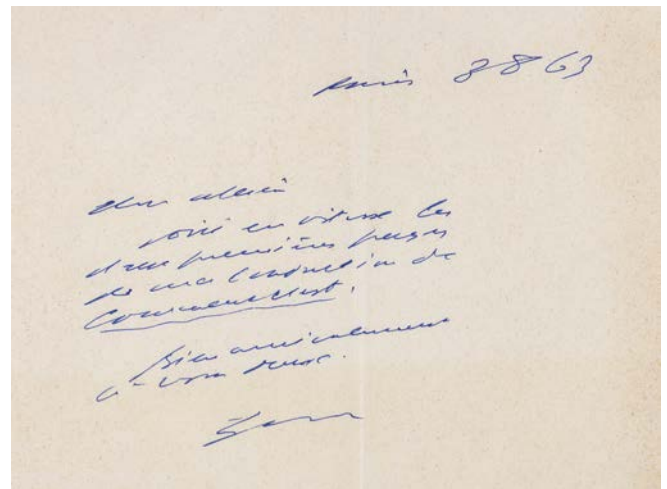 Paris 8 8 63
Cher
voici en vitesse les
deux premières pages
de ma traduction de
Comment c'est.
Bien amicalement
à vous deux.
Sam